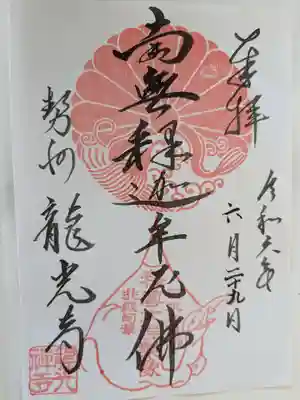 奉拝
令和六年
六月二十九日
南無釋迦牟尼佛
勢州 龍光寺